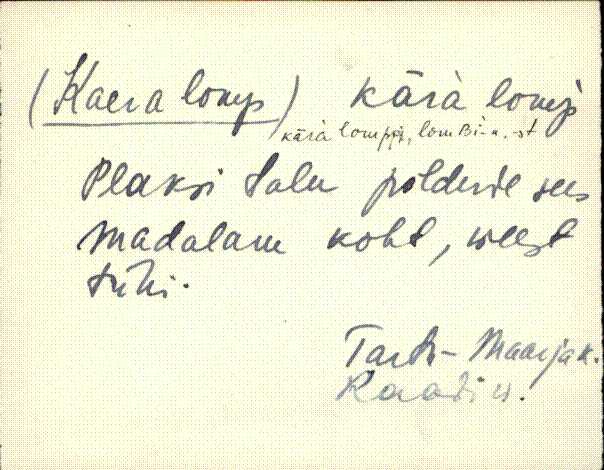 (Kaera lomp) kärà lomp
kärà lomppi, lomBi-n. -st
Plaksi talu põldude sees
madalam koht, veest
tühi.
Tartu-Maarja k.
Raadi v.